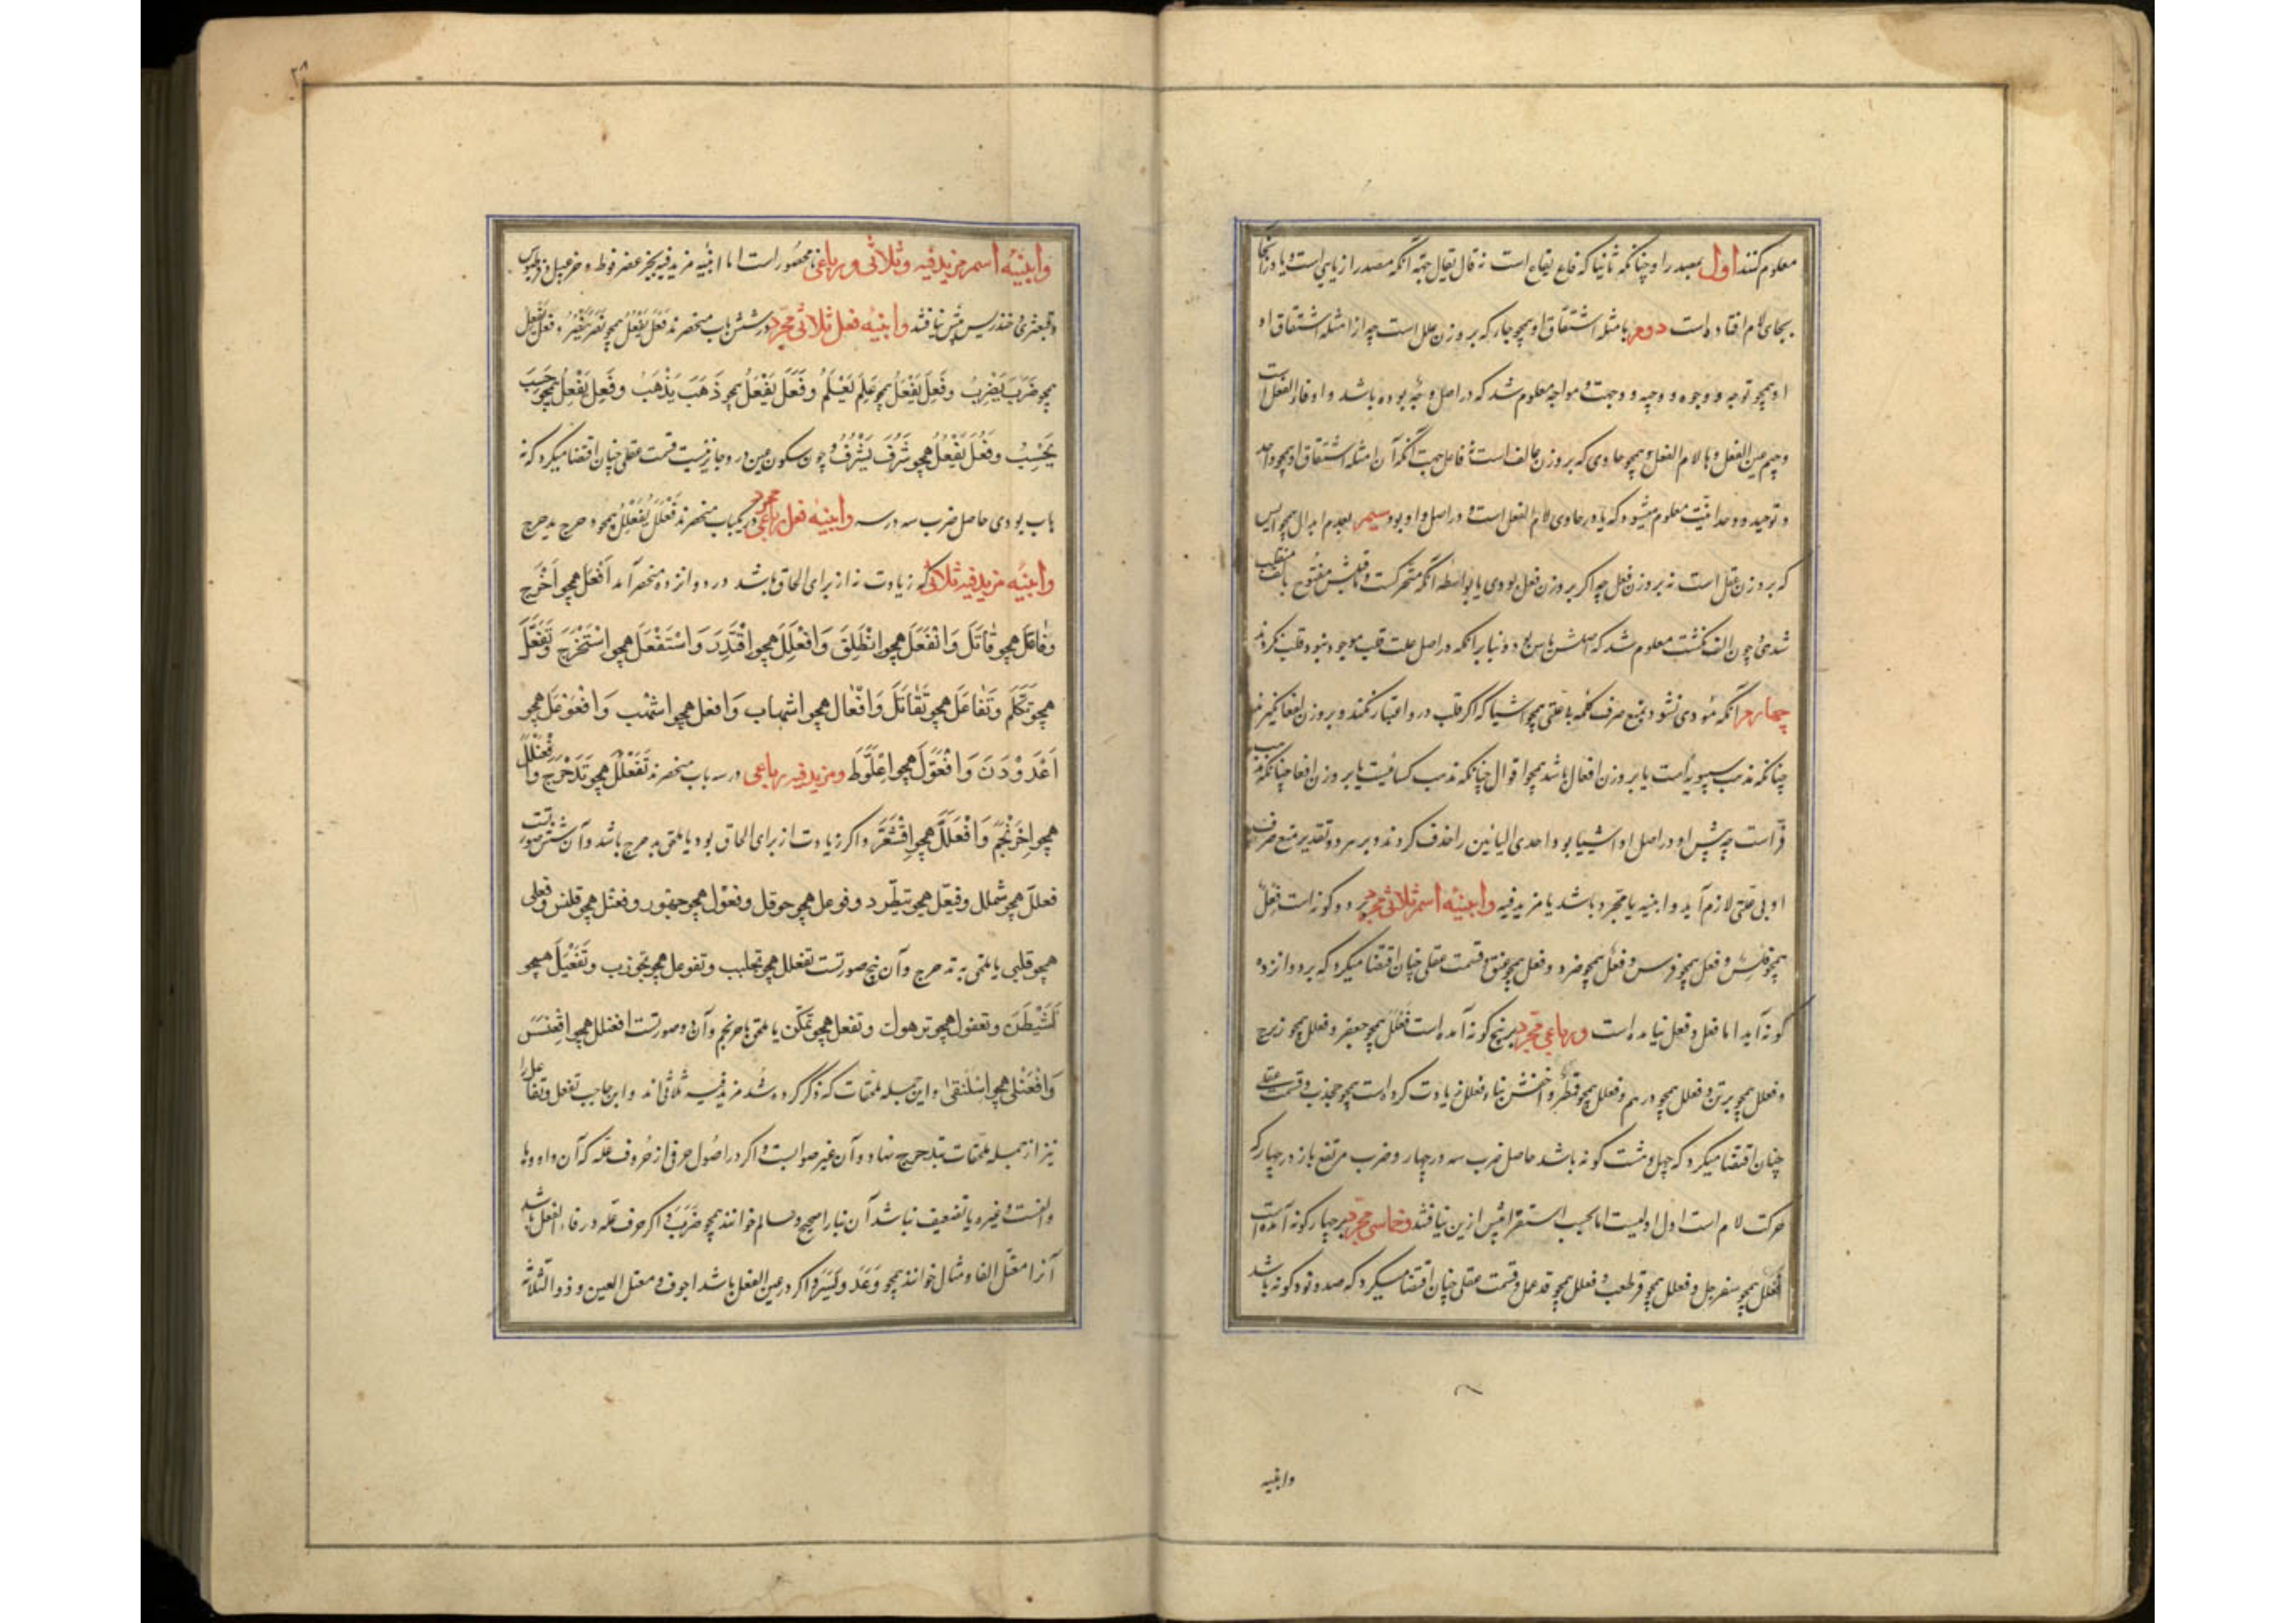 معلوم کنند اول بمصدر او چنانکه ناء یناء که فلع یفلع است نه فال یفال جهة آنکه مصدر از نایی است و یا در آنجا
بجای لام افتاده است دوم بامثله اشتقاق او همچو جاه که بر وزن عفل است چه از امثله اشتقاق او
او همچو توجه و وجوه و وجیه و وجهت و مواجهه معلوم شد که در اصل وجه بوده باشد و او فاء الفعل است
و جیم عین الفعل و ها لام الفعل و همچو حادی که بر وزن عالف است نه فاعل جهت آنکه از امثله اشتقاق او همچو واحد
و توحید و وحدانیت معلوم میشود که یا در حادی لام الفعل است و در اصل واو بود سیم بعدم ابدال همچو ایس
که بر وزن عفل است نه بر وزن فعل چه اکر بر وزن فعل بودی یا بواسطه آنکه متحرکست و ماقبلش مفتوح بالف منقلب
شدی و چون الف نکشت معلوم شد که اصلش یاس بود و بنا بر آنکه در اصل علت قلب موجود نبود قلب نکردند
چهارم آنکه مؤدی نشود بمنع صرف کلمه بی علتی همچو اشیا که اکر قلب در و اعتبار نکنند و بر وزن لفعا نکیرند
چنانکه مذهب سیبویه است یا بر وزن افعال باشد همچو اقوال چنانکه مذهب کسائیست یا بر وزن افعا چنانکه مذهب
فراست چه پیش او در اصل او اشییا بود احدی الیائین را حذف کردند و بر هر دو تقدیر منع صرف
او بی علتی لازم آید و ابنیه یا مجرد باشد یا مزید فیه وابنیه اسم ثلاثی مجرد ده کونه است فعل
همچو فلس و فعل همچو فرس و فعل همچو صرد و فعل همچو عنق و قسمت عقلی چنان اقتضا میکرد که بر دوازده
کونه آید اما فعل و فعل نیامده است و رباعی مجرد بر پنج کونه آمده است فعلل همچو جعفر و فعلل همچو زبرج
و فعلل همچو برثن و فعلل همچو درهم و فعلل همچو قمطر و اخفش بناء فعلل زیادت کرده است همچو جخدب و قسمت عقلی
چنان اقتضا میکرد که چهل و هشت کونه باشد حاصل ضرب سه در چهار و ضرب مرتفع باز در چهار که
حرکت لام است اول اولیست اما بحسب استقرا بیش ازین نیافتند و خماسی مجرد بر چهار کونه آمده است
فعلل همچو سفرجل و فعلل همچو قرطعب و فعلل همچو قذعمل و قسمت عقلی چنان اقتضا میکرد که صد و نود کونه باشد
وابنیه
۲۸
وابنیه اسم مزید فیه و ثلاثی و رباعی نامحصور است اما ابنیه مزید فیه بجز عضرفوط و خزعبیل و قرطبوس
و قبعثری و خندریس بیش نیافتند وابنیه فعل ثلاثی مجرد در شش باب منحصرند فعل یفعل همچو نصر ینصر و فعل یفعل
همچو ضرب یضرب و فعل یفعل همچو علم یعلم و فعل یفعل همچو ذهب یذهب و فعل یفعل همچو حسب
یحسب و فعل یفعل همچو شرف یشرف و چون سکون عین در و جایز نیست قسمت عقلی چنان اقتضا میکرد که نه
باب بودی حاصل ضرب سه در سه وابنیه فعل رباعی مجرد در یکباب منحصرند فعلل یفعلل همچو دحرج یدحرج
وابنیه مزید فیه ثلاثی که زیادت نه از برای الحاق باشد در دوازده منحصر آمد افعل همچو اخرج
وفاعل همچو قاتل وانفعل همچو انطلق وافتعل همچو اقتدر واستفعل همچو استخرج وتفعل
همچو تکلم وتفاعل همچو تقاتل وافعال همچو اشهاب وافعل همچو اشهب وافعوعل همچو
اغدودن وافعول همچو اعلوط ومزید فیه رباعی در سه باب منحصرند تفعلل همچو تدحرج وافعنلل
همچو احرنجم وافعلل همچو اقشعر و اکر زیادت از برای الحاق بود یا ملحق بدحرج باشد و آن شش صورتست
فعلل همچو شملل وفیعل همچو بیطر وفوعل همچو حوقل وفعول همچو جهور وفعنل همچو قلنس وفعلی
همچو قلسی یا ملحق به تدحرج و آن پنج صورتست تفعلل همچو تجلبب وتفوعل همچو تجورب وتفیعل همچو
تشیطن وتفعول همچو ترهوک وتمفعل همچو تمسکن یا ملحق باحرنجم و آن دو صورتست افعنلل همچو اقعنسس
وافعنلی همچو اسلنقی و این جمله ملحقات که ذکر کرده شد مزید فیه ثلاثی اند و ابن حاجب تفعل وتفاعل را
نیز از جمله ملحقات بتدحرج نهاد و آن غیر صوابست و اکر در اصول حرفی از حروف علّه که آن واو و یا
و الفست و غیره یا تضعیف نباشد آن بنا را صحیح و سالم خوانند همچو ضرب و اکر حرف علّه در فاء الفعل باشد
آنرا معتل الفا و مثال خوانند همچو وعد ویسر و اکر در عین الفعل باشد اجوف و معتل العین و ذو الثلاثه